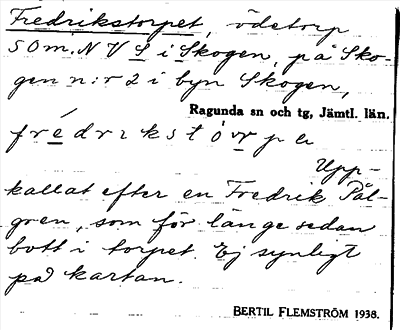 Fredrikstorpet, ödetorp
50 m. N V S i Skogen, på Sko-
gen n:r 2 i byn Skogen,
Ragunda sn och tg, Jämtl. län.
Upp-
kallat efter en Fredrik Pål-
gren, som för länge sedan
bott i torpet. Ej synligt
på kartan.
BERTIL FLEMSTRÖM 1938.